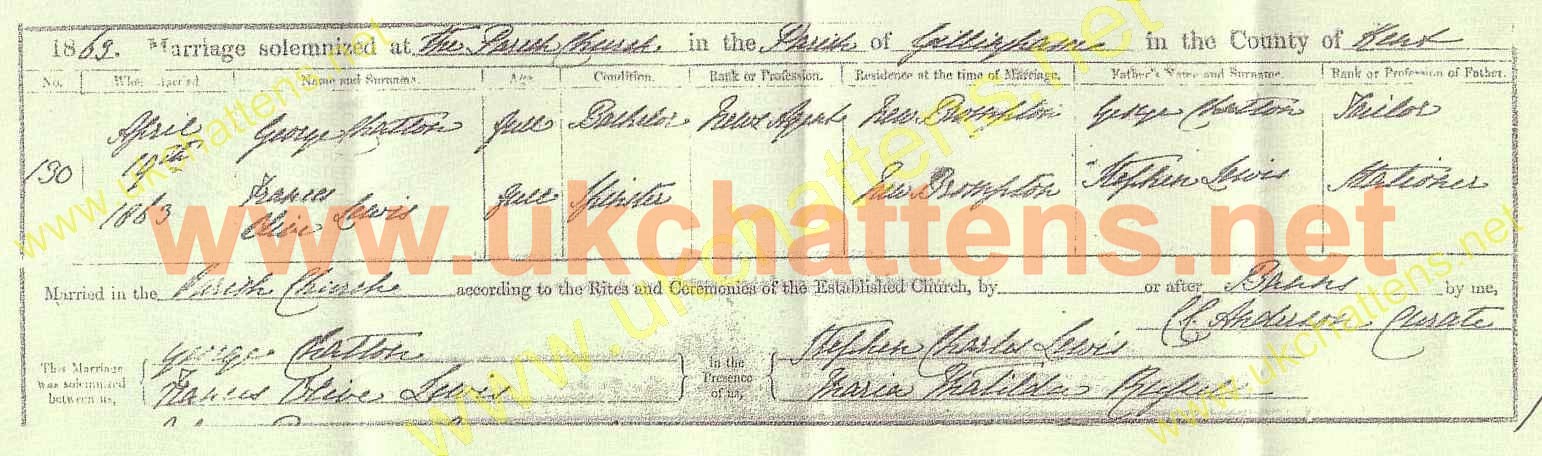 1863. Marriage solemnized at The Parish Church in the Parish of Gillingham in the County of Kent
No. When Married. Name and Surname. Age Condition. Rank or Profession. Residence at the time of Marriage. Father's Name and Surname. Rank or Profession of Father.
130 April 19th 1863 George Chatton full Bachelor News Agent New Brompton George Chatton Tailor
Frances Olive Lewis full Spinster New Brompton Stephen Lewis Stationer
www.ukchattens.net
Married in the Parish Church according to the Rites and Ceremonies of the Established Church, by or after Banns by me,
C. Anderson Curate
This Marriage was solemnized between us, George Chatton Frances Olive Lewis In the Presence of us, Stephen Charles Lewis Maria Matilda
www.ukchattens.net
www.ukchattens.net
www.ukchattens.net
www.ukchattens.net